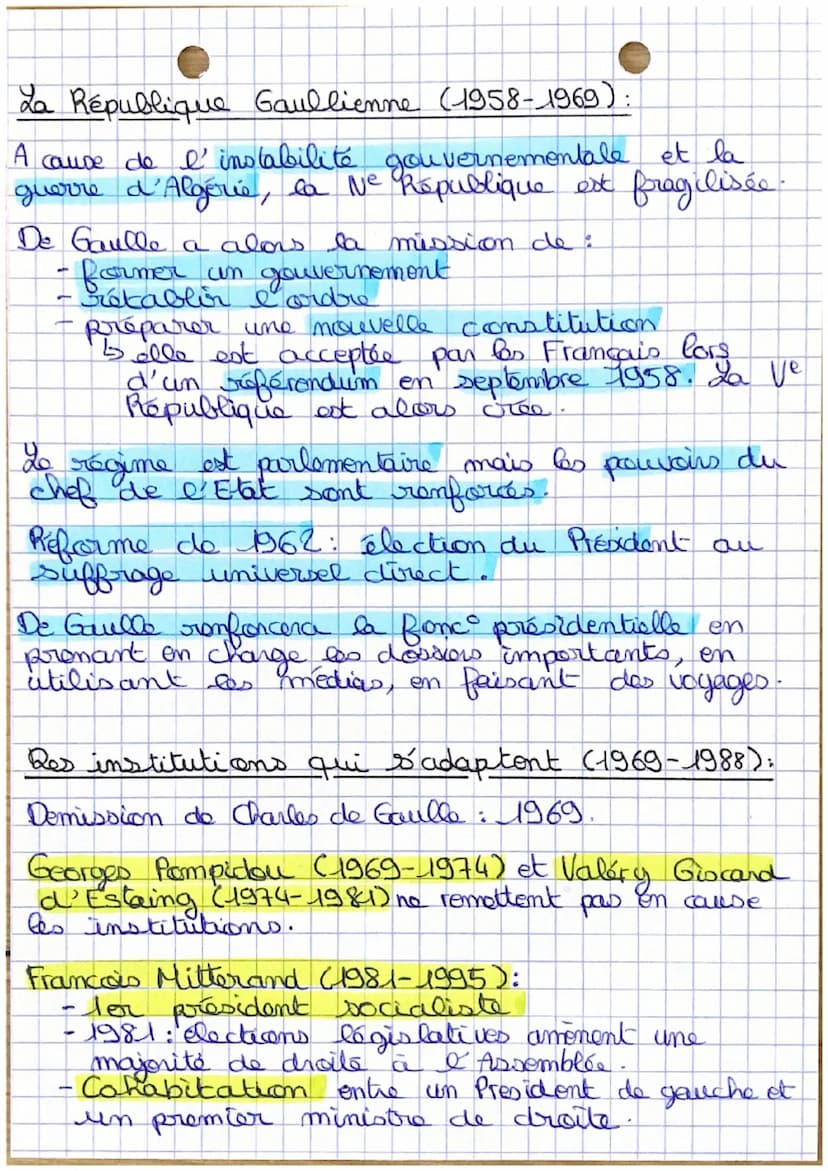 La République Gaullienne (1958-1969) :
A cause de l'instabilité gouvernementale et la
guerre d'Algérie, la IVe République est fragilisée.
De Gaulle a alors la mission de :
- former un gouvernement
- rétablir l'ordre
- préparer une nouvelle constitution
↳ elle est acceptée par les Français lors
d'un référendum en septembre 1958. La Ve
République est alors crée.
Le régime est parlementaire mais les pouvoirs du
chef de l'Etat sont renforcés.
Réforme de 1962 : élection du Président au
suffrage universel direct.
De Gaulle renforcera la fonc° présidentielle en
prenant en charge les dossiers importants, en
utilisant les médias, en faisant des voyages.
Des institutions qui s'adaptent (1969-1988) :
Demission de Charles de Gaulle : 1969.
Georges Pompidou (1969-1974) et Valéry Giscard
d'Estaing (1974-1981) ne remettent pas en cause
les institutions.
Francois Mitterand (1981-1995) :
- 1er président socialiste
- 1981 : élections législatives amènent une
majorité de droite à l'Assemblée.
- Cohabitation entre un President de gauche et
un premier ministre de droite.